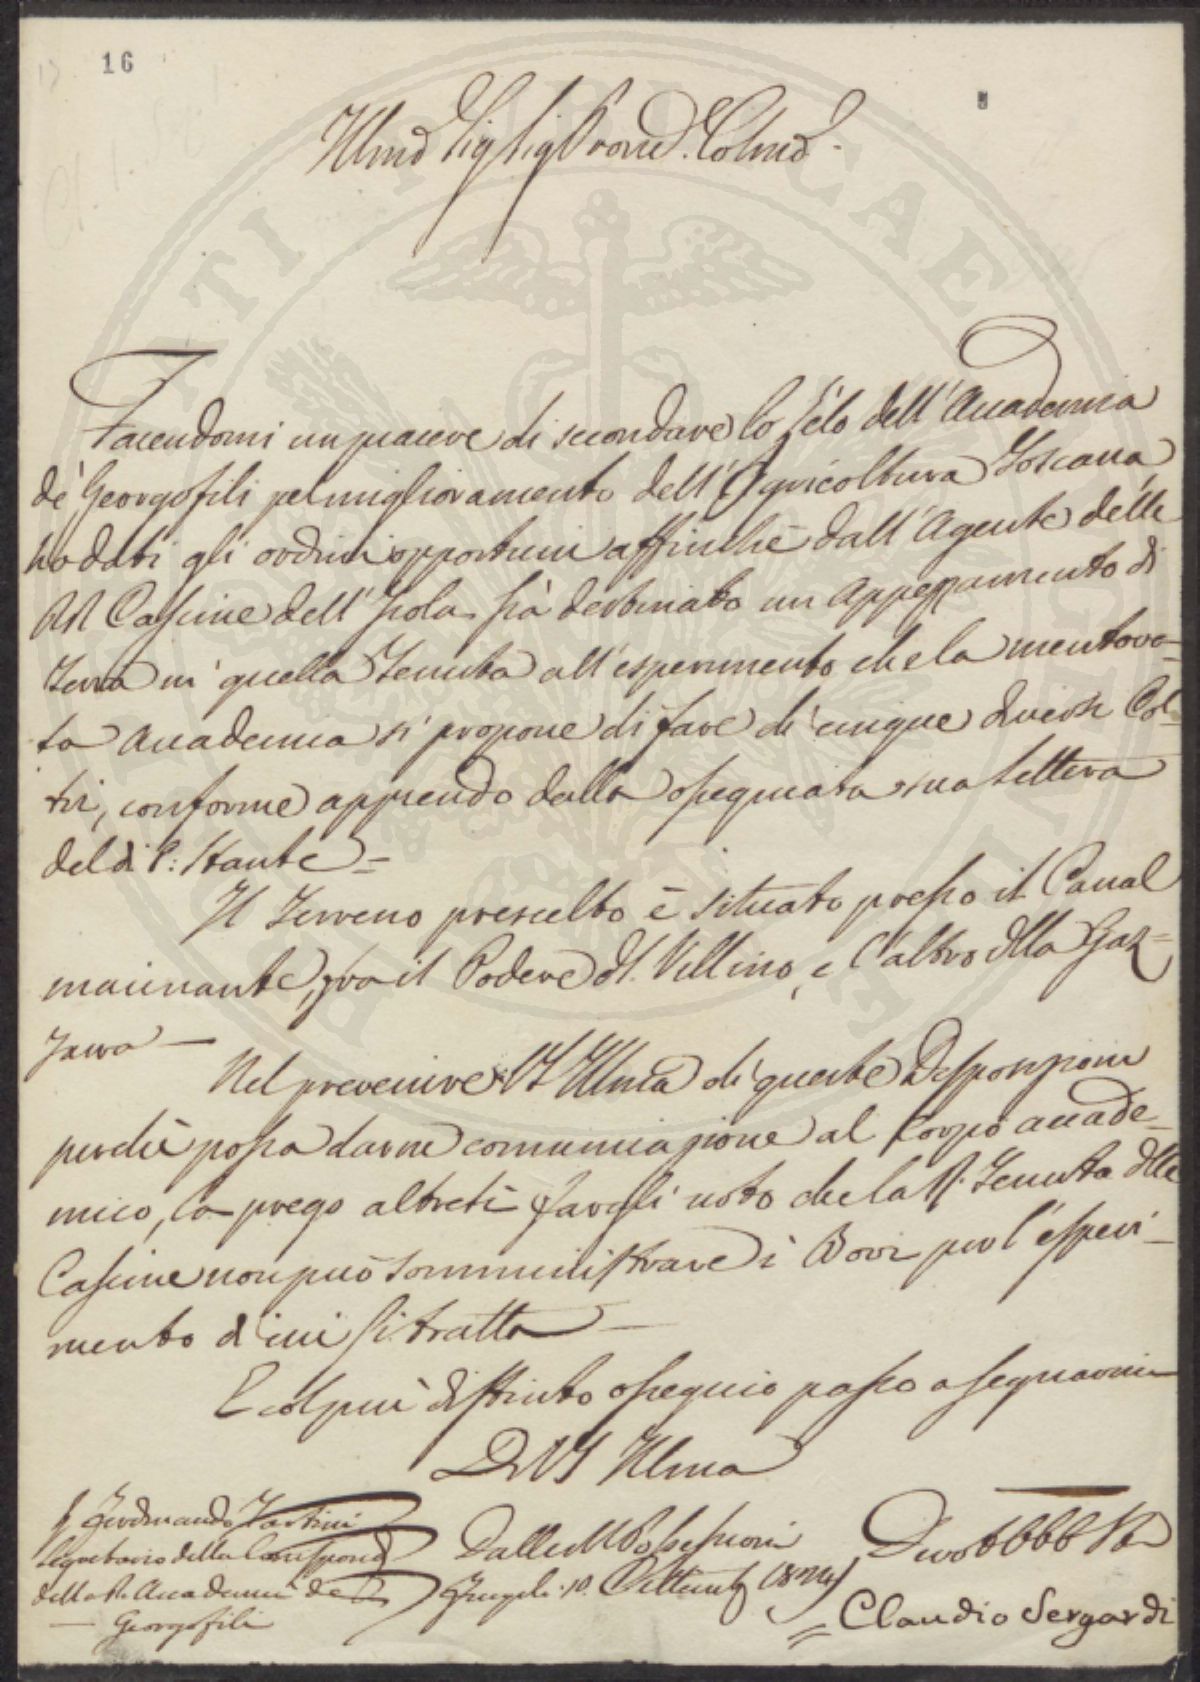 16
Illmo Sig. Sig. Prone Colmo
Facendomi un piacere di secondare lo Zelo dell'Accademia
de' Georgofili pel miglioramento dell'Agricoltura Toscana,
ho dati gli ordini opportuni affinchè dall'Agente delle
RR. Cascine dell'Isola sia destinato un Appezzamento di
Terra in quella Tenuta all'esperimento che la mentova=
ta Accademia si propone di fare di cinque diversi Col=
tri, conforme apprendo dalla ossequiata sua Lettera
del dì P: Stante=
Il Terreno prescelto è situato presso il Canal
macinante, fra il Podere del Vellino, e l'altro della Gaz=
zarra —
Nel prevenire VS Illma di queste Disposizioni
perchè possa darne comunicazione al Corpo accade=
mico, la prego altresì fargli noto che la R. Tenuta delle
Cascine non può somministrare i Bovi per l'esperi=
mento di cui si tratta —
E col più distinto ossequio passo a segnarmi
Di VS Illma
Ferdinando Tartini
Segretario della Corrispond.
della R. Accademia de
Georgofili
Dalle RR Possessioni
10. Settembre 1824
Claudio Sergardi